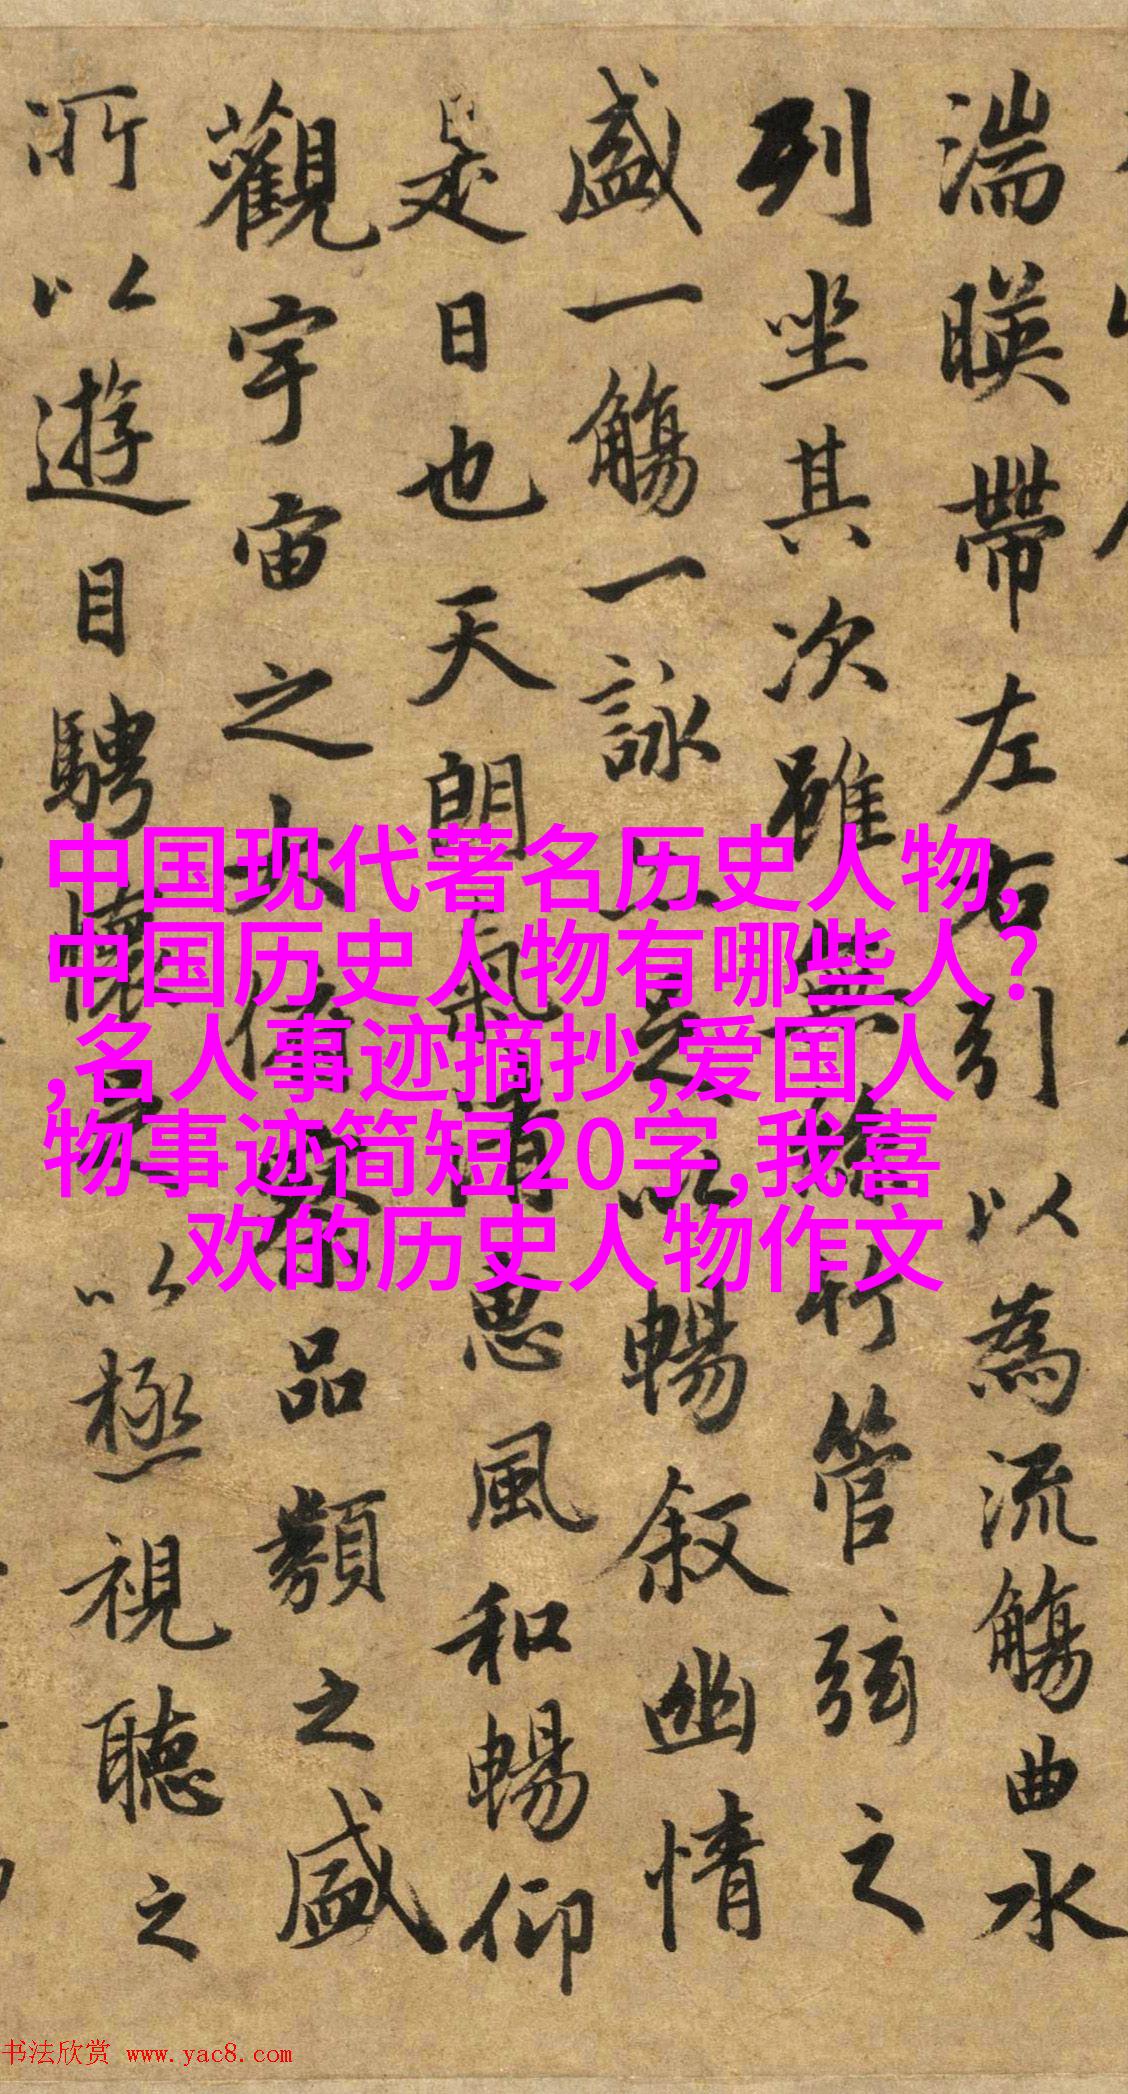 湍暎帶左右引以為流觴曲水
列坐其次雖無絲竹管弦之
盛一觴一詠亦足以暢叙幽情
是日也天朗氣清惠風和暢仰
觀宇宙之大俯察品類之盛
所以遊目騁懷足以極視聽之
中国现代著名历史人物,
中国历史人物有哪些人?
,名人事迹摘抄,爱国人
物事迹简短20字,我喜
欢的历史人物作文
书法欣赏 www.yac8.com